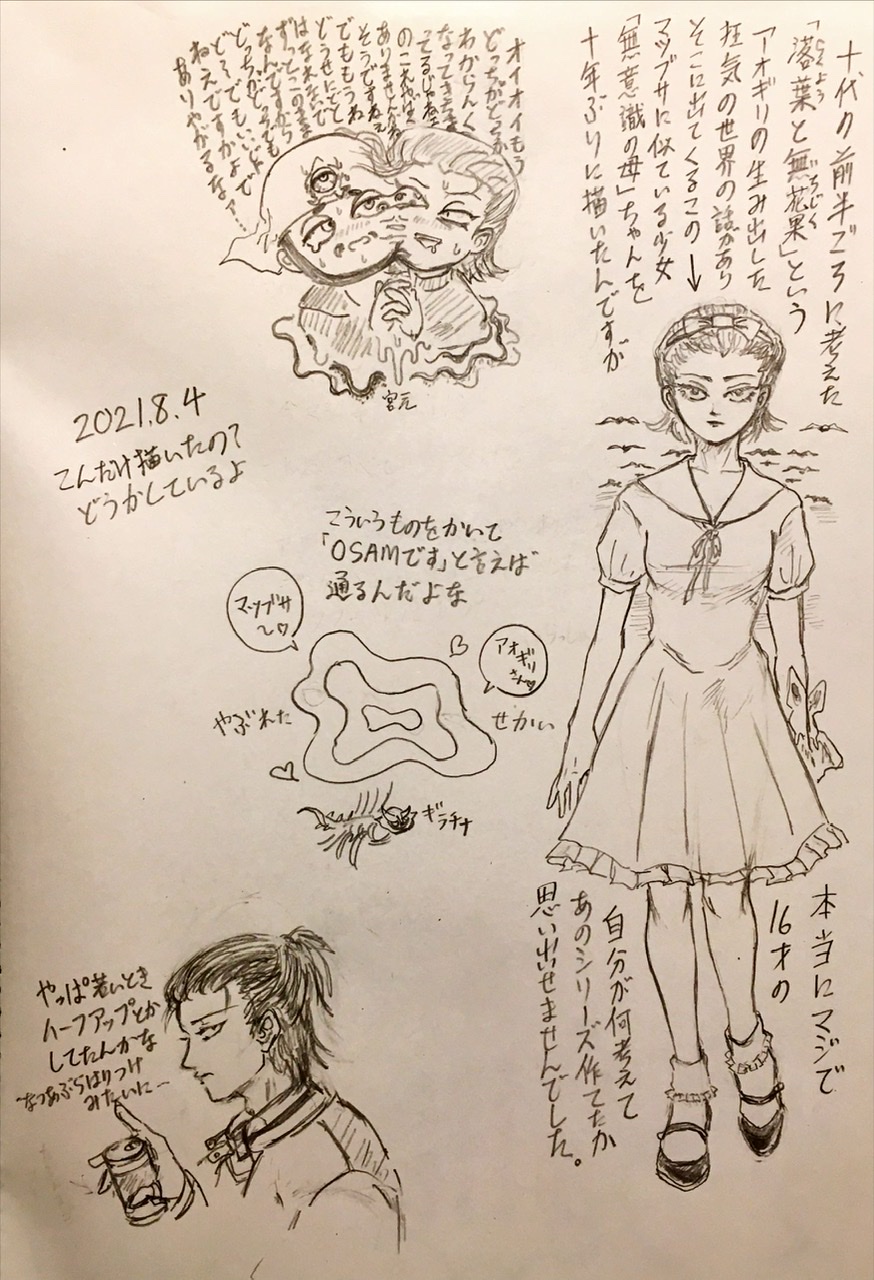 十代の前半ごろに考えた
「落葉と無花果」という
らくよう
いちじく
アオギリの生み出した
狂気の世界の話があり
そこに出てくるこの→
マツブサに似ている少女
「無意識の母」ちゃんを
十年ぶりに描いたんですが
本当にマジで
16才の
自分が何考えて
あのシリーズ作てたか
思い出せませんでした。
オイオイもう
どっちがどっか
わからんく
なってきちま
ってるじゃねえ
のこれやばく
ありませんかね
そうですねえ
でももうね
どうせにどと
はなれないで
ずっとこのまま
なんですから
どっちがどっでも
どーでもいいんで
ねえですかよ
ありやがるなァ…
宮元
2021.8.4
こんだけ描いたの?
どうかしているよ
こういうものをかいて
「OSAMです」と言えば
通るんだよな
マツブサ
~♡
アオギリ
さん♡
やぶれた
せかい
ギラチナ
やっぱ若いとき
ハーフアップとか
してたんかな
~なつあぶらはりつけ
みたいに~